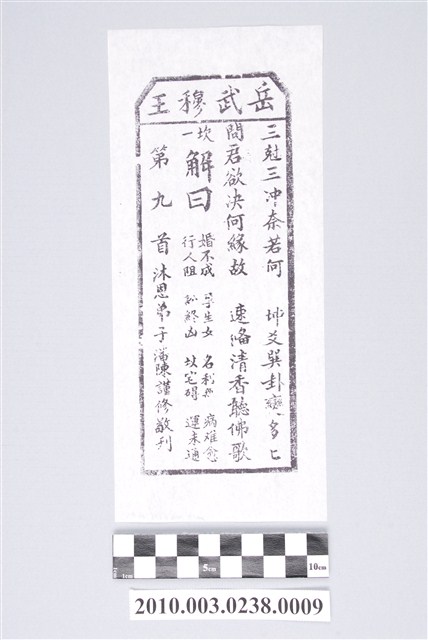 岳武穆王
三尅三冲奈若何 坤爻巽卦 多亡
問君欲決何緣故 速備清香聽佛歌
坎一
解曰
婚不成 孕生女 名利無 病难愈
行人阻 訟終凶 坟宅碍 運未通
第九首 沐恩弟子 陳謹修敬刊
1cm
5cm
10cm
2010.003.0238.0009